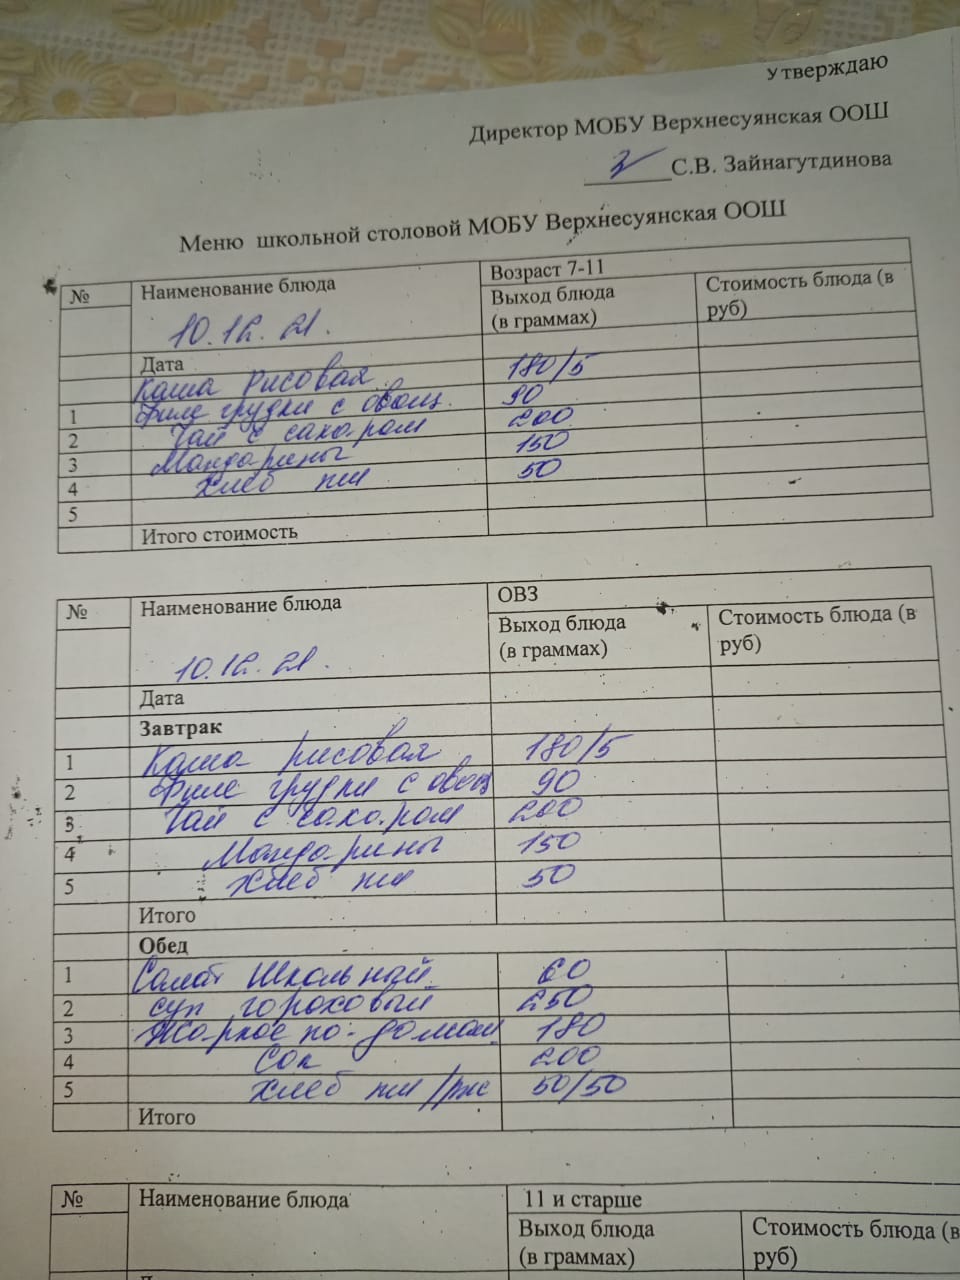 Утверждаю
Директор МОБУ Верхнесуянская ООШ
С.В. Зайнагутдинова
Меню школьной столовой МОБУ Верхнесуянская ООШ
№ Наименование блюда Возраст 7-11
Выход блюда (в граммах) Стоимость блюда (в руб)
10.12.21.
Дата
Каша рисовая 180/5
1 Филе грудки с овощ. 90
2 Чай с сахаром 200
3 Мандарины 150
4 Хлеб пш 50
5
Итого стоимость
№ Наименование блюда ОВЗ
Выход блюда (в граммах) Стоимость блюда (в руб)
10.12.21.
Дата
Завтрак
1 Каша рисовая 180/5
2 Филе грудки с овощ 90
3 Чай с сахаром 200
4 Мандарины 150
5 Хлеб пш 50
Итого
Обед
1 Салат Школьный 60
2 суп гороховый 250
3 Жаркое по-домаш. 180
4 Сок 200
5 Хлеб пш/рж 50/50
Итого
№ Наименование блюда 11 и старше
Выход блюда (в граммах) Стоимость блюда (в руб)